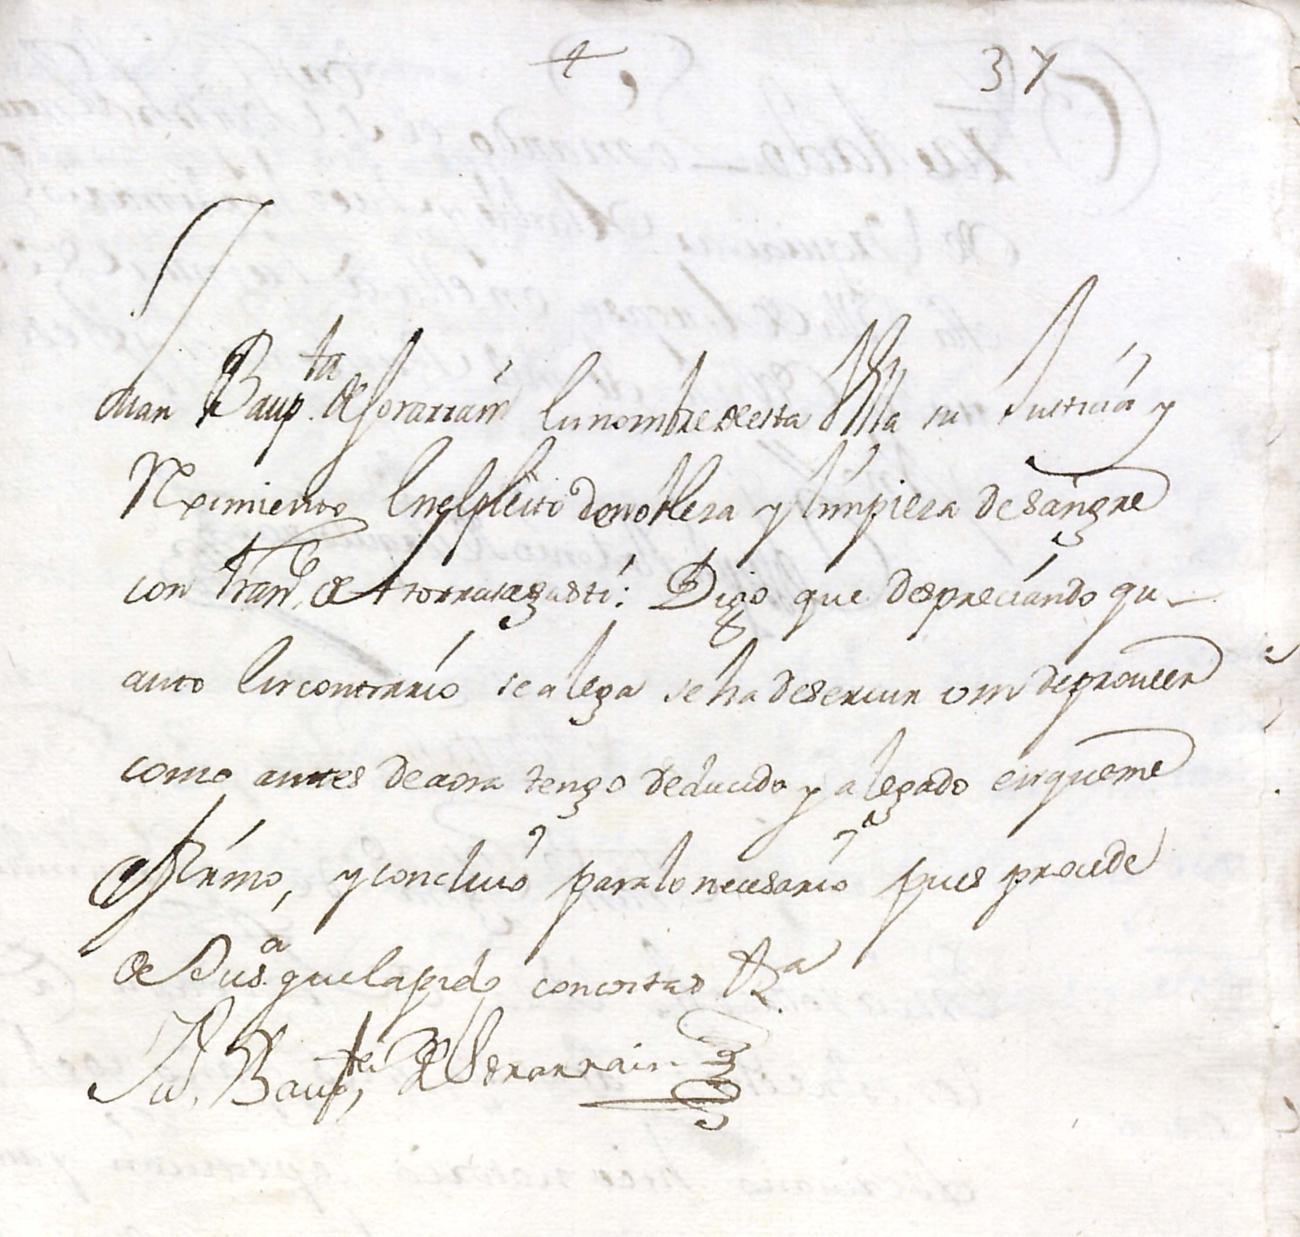 37
Juan Baup.ta de Sorarrain En nombre de esta Villa su Justicia y
Reximiento En el pleito de nobleza y limpieza de sangre
con Fran.co de Atorrasagasti: Digo que despreciando qu-
anto En contrario se alega se ha de servir vm de proveer
como antes de aora tengo deducido y alegado en que me
afirmo, y concluio para lo necesario pues procede
de Jus.a que la pido con costas &.a
Ju. Baup.ta de Sorarrain